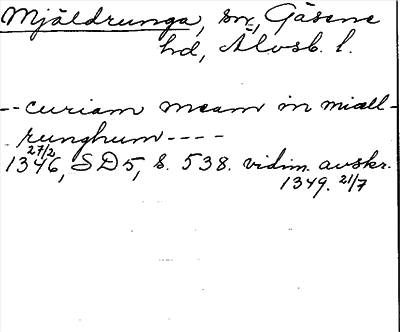 Mjäldrunga, sn, Gäsene
hd, Älvsb. l.
-- curiam meam in miæll-
runghum ----
27/2
1346, SD 5, s. 538. vidim. avskr.
1349. 21/7